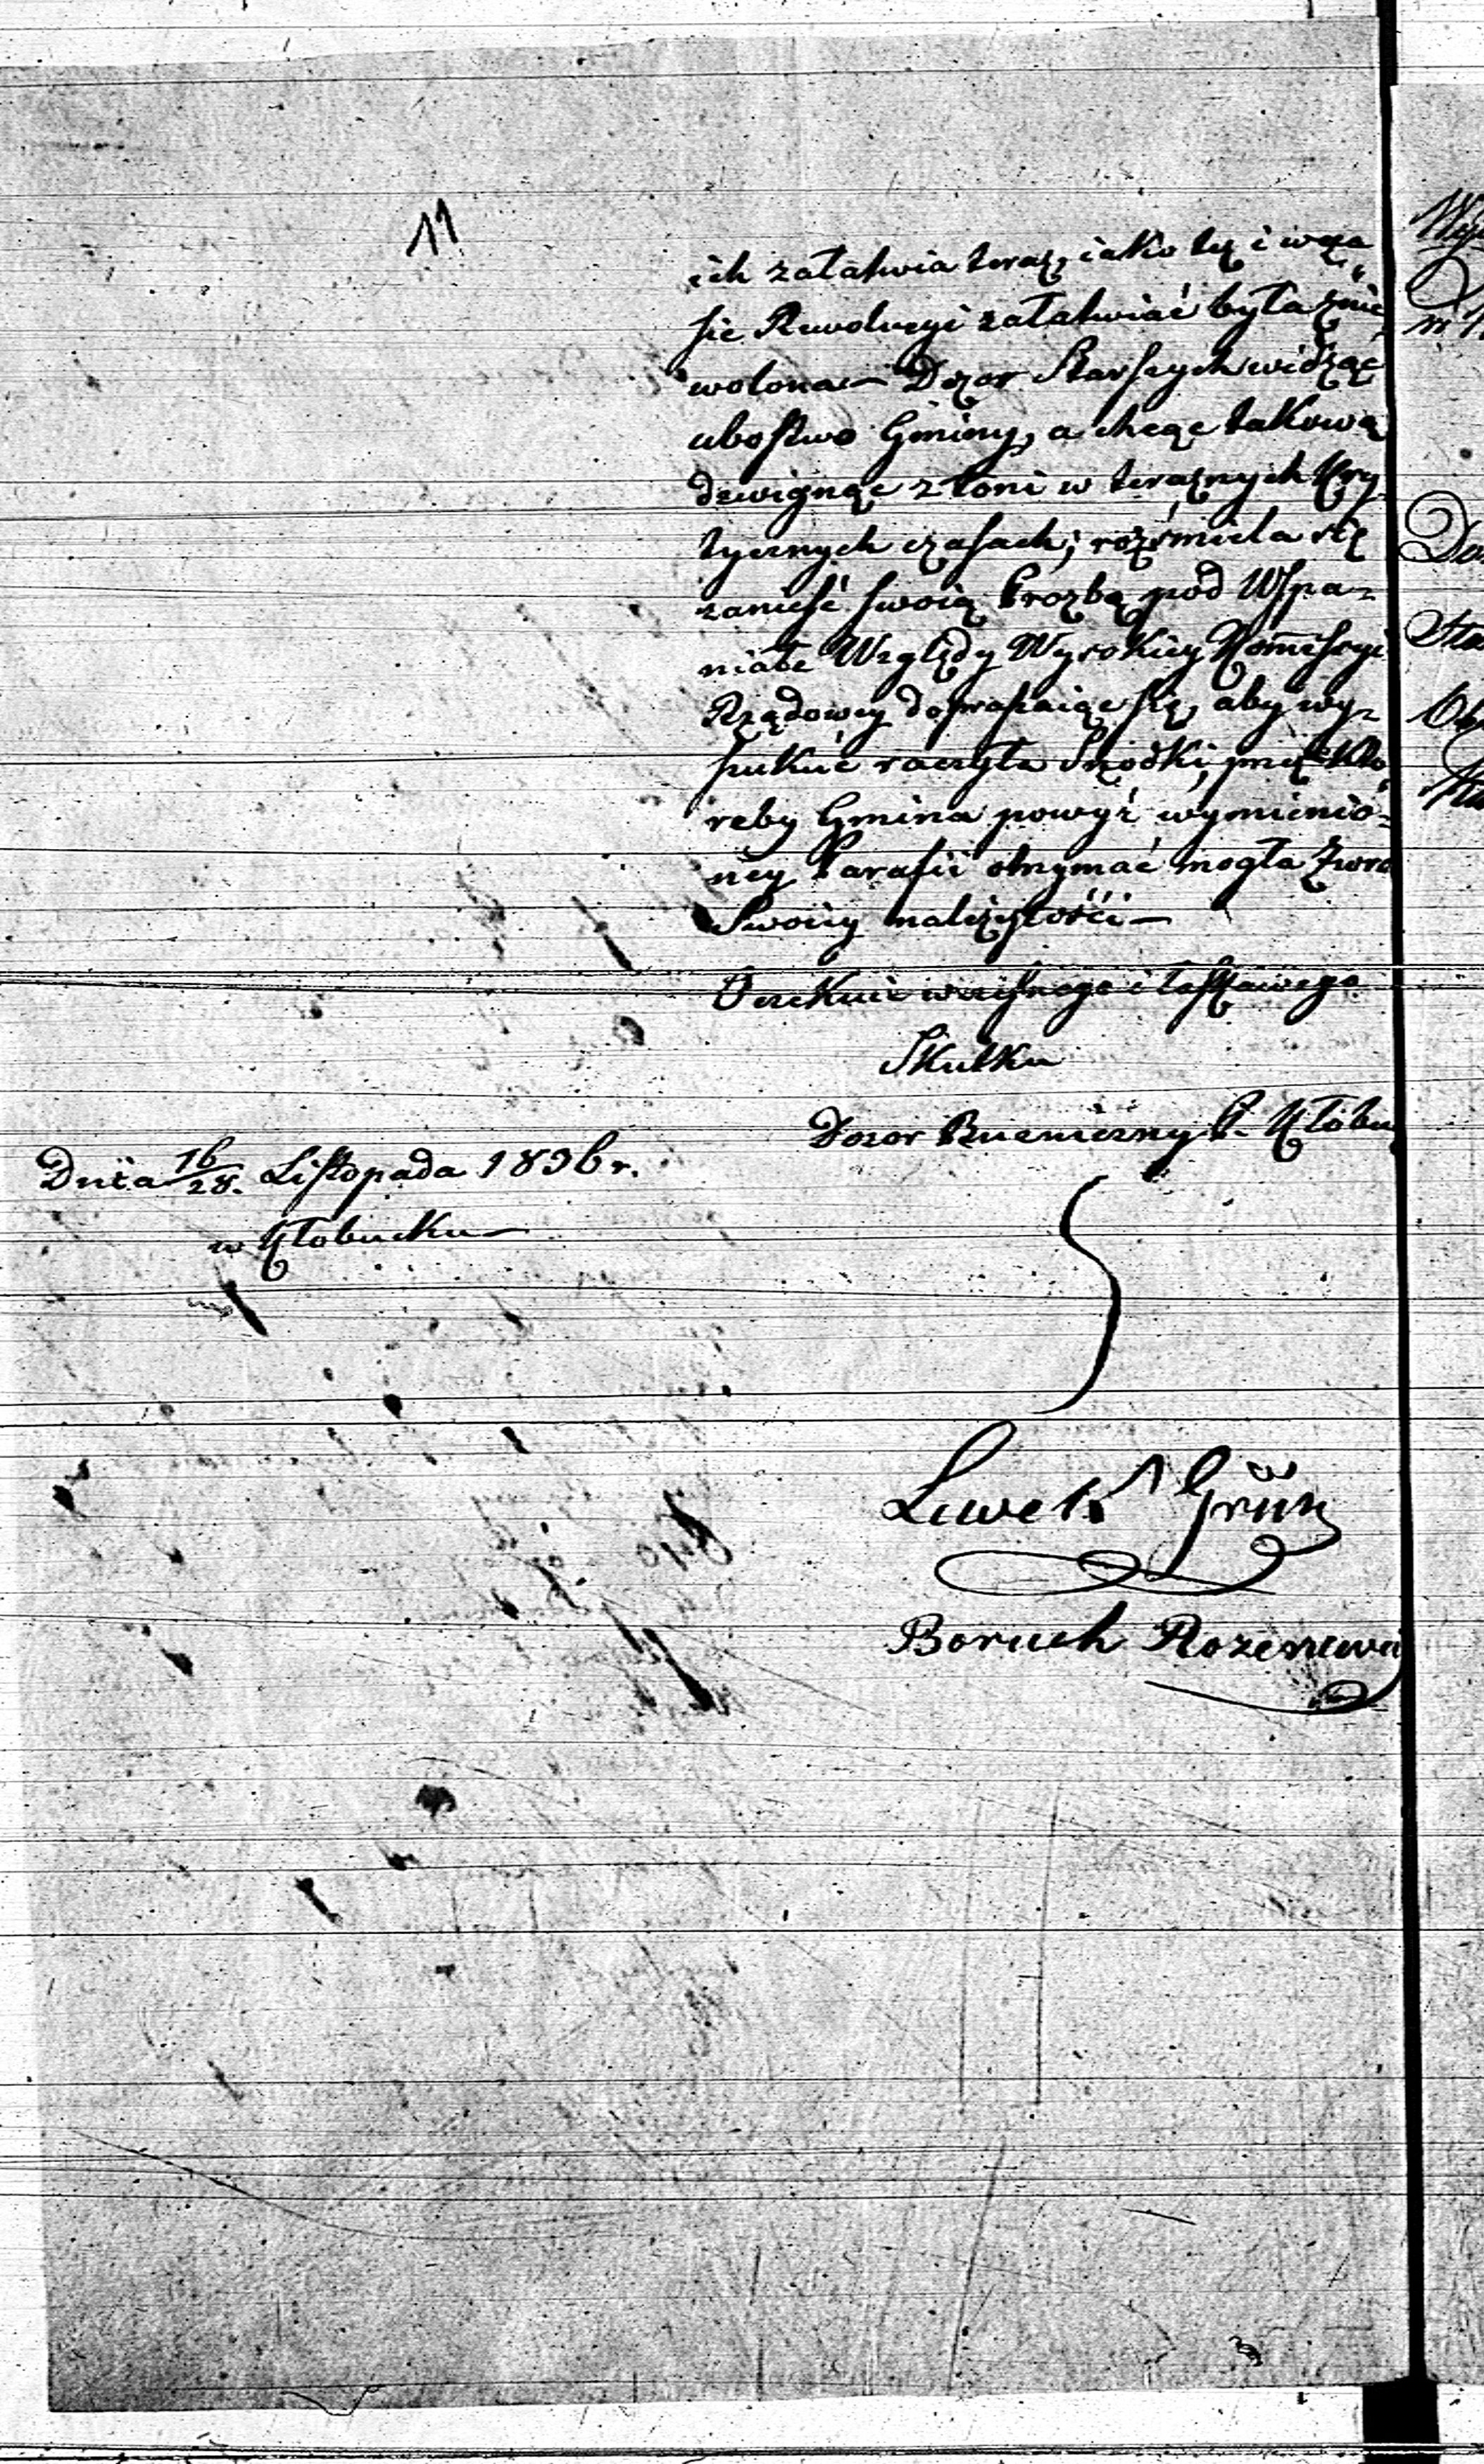 11
ich załatwia teraz, iako też i w cza
sie Rewolucyi załatwiać była znie
wolona — Dozor Starszych widząc
ubostwo Gminy, a chcąc takową
dzwignąc z toni w teraznych Kry
tycznych czasach; rozśmiela się
zanieść swoią Prozbę pod Wspa-
niałe Względy Wysokiey Kommissyi
Rządowey dopraszaiąc się, aby wy-
szukać raczyła Srzodki, przez któ
reby Gmina powyż wymienio-
ney Parafii otrzymać mogła Zwro
Swoiey należytości —
Oczekuie wczesnego i łaskawego
Skutku
Dozor Buzniczny P. Kłobu
Dnia 16/28. Listopada 1836 r.
w Kłobucku —
Lewek Grün
Boruch Rozencwei